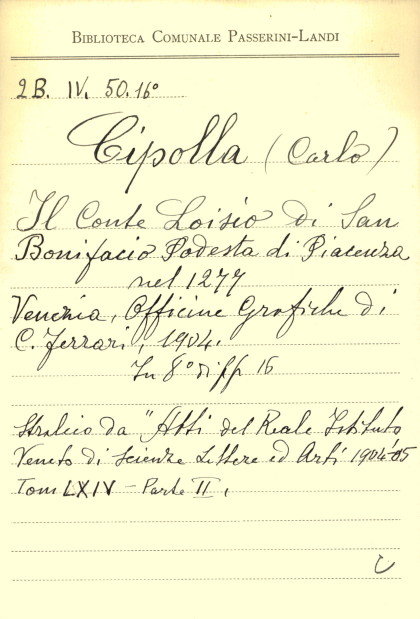 BIBLIOTECA COMUNALE PASSERINI-LANDI
2B. IV. 50. 16°
Cipolla (Carlo)
Il Conte Loisio di San
Bonifacio Podesta di Piacenza
nel 1277
Venezia, Officine Grafiche di
C. Ferrari, 1904.
In 8° di pp 16
Stralcio da "Atti del Reale Istituto
Veneto di Scienze Lettere ed Arti 1904-05
Tom LXIV - Parte II,